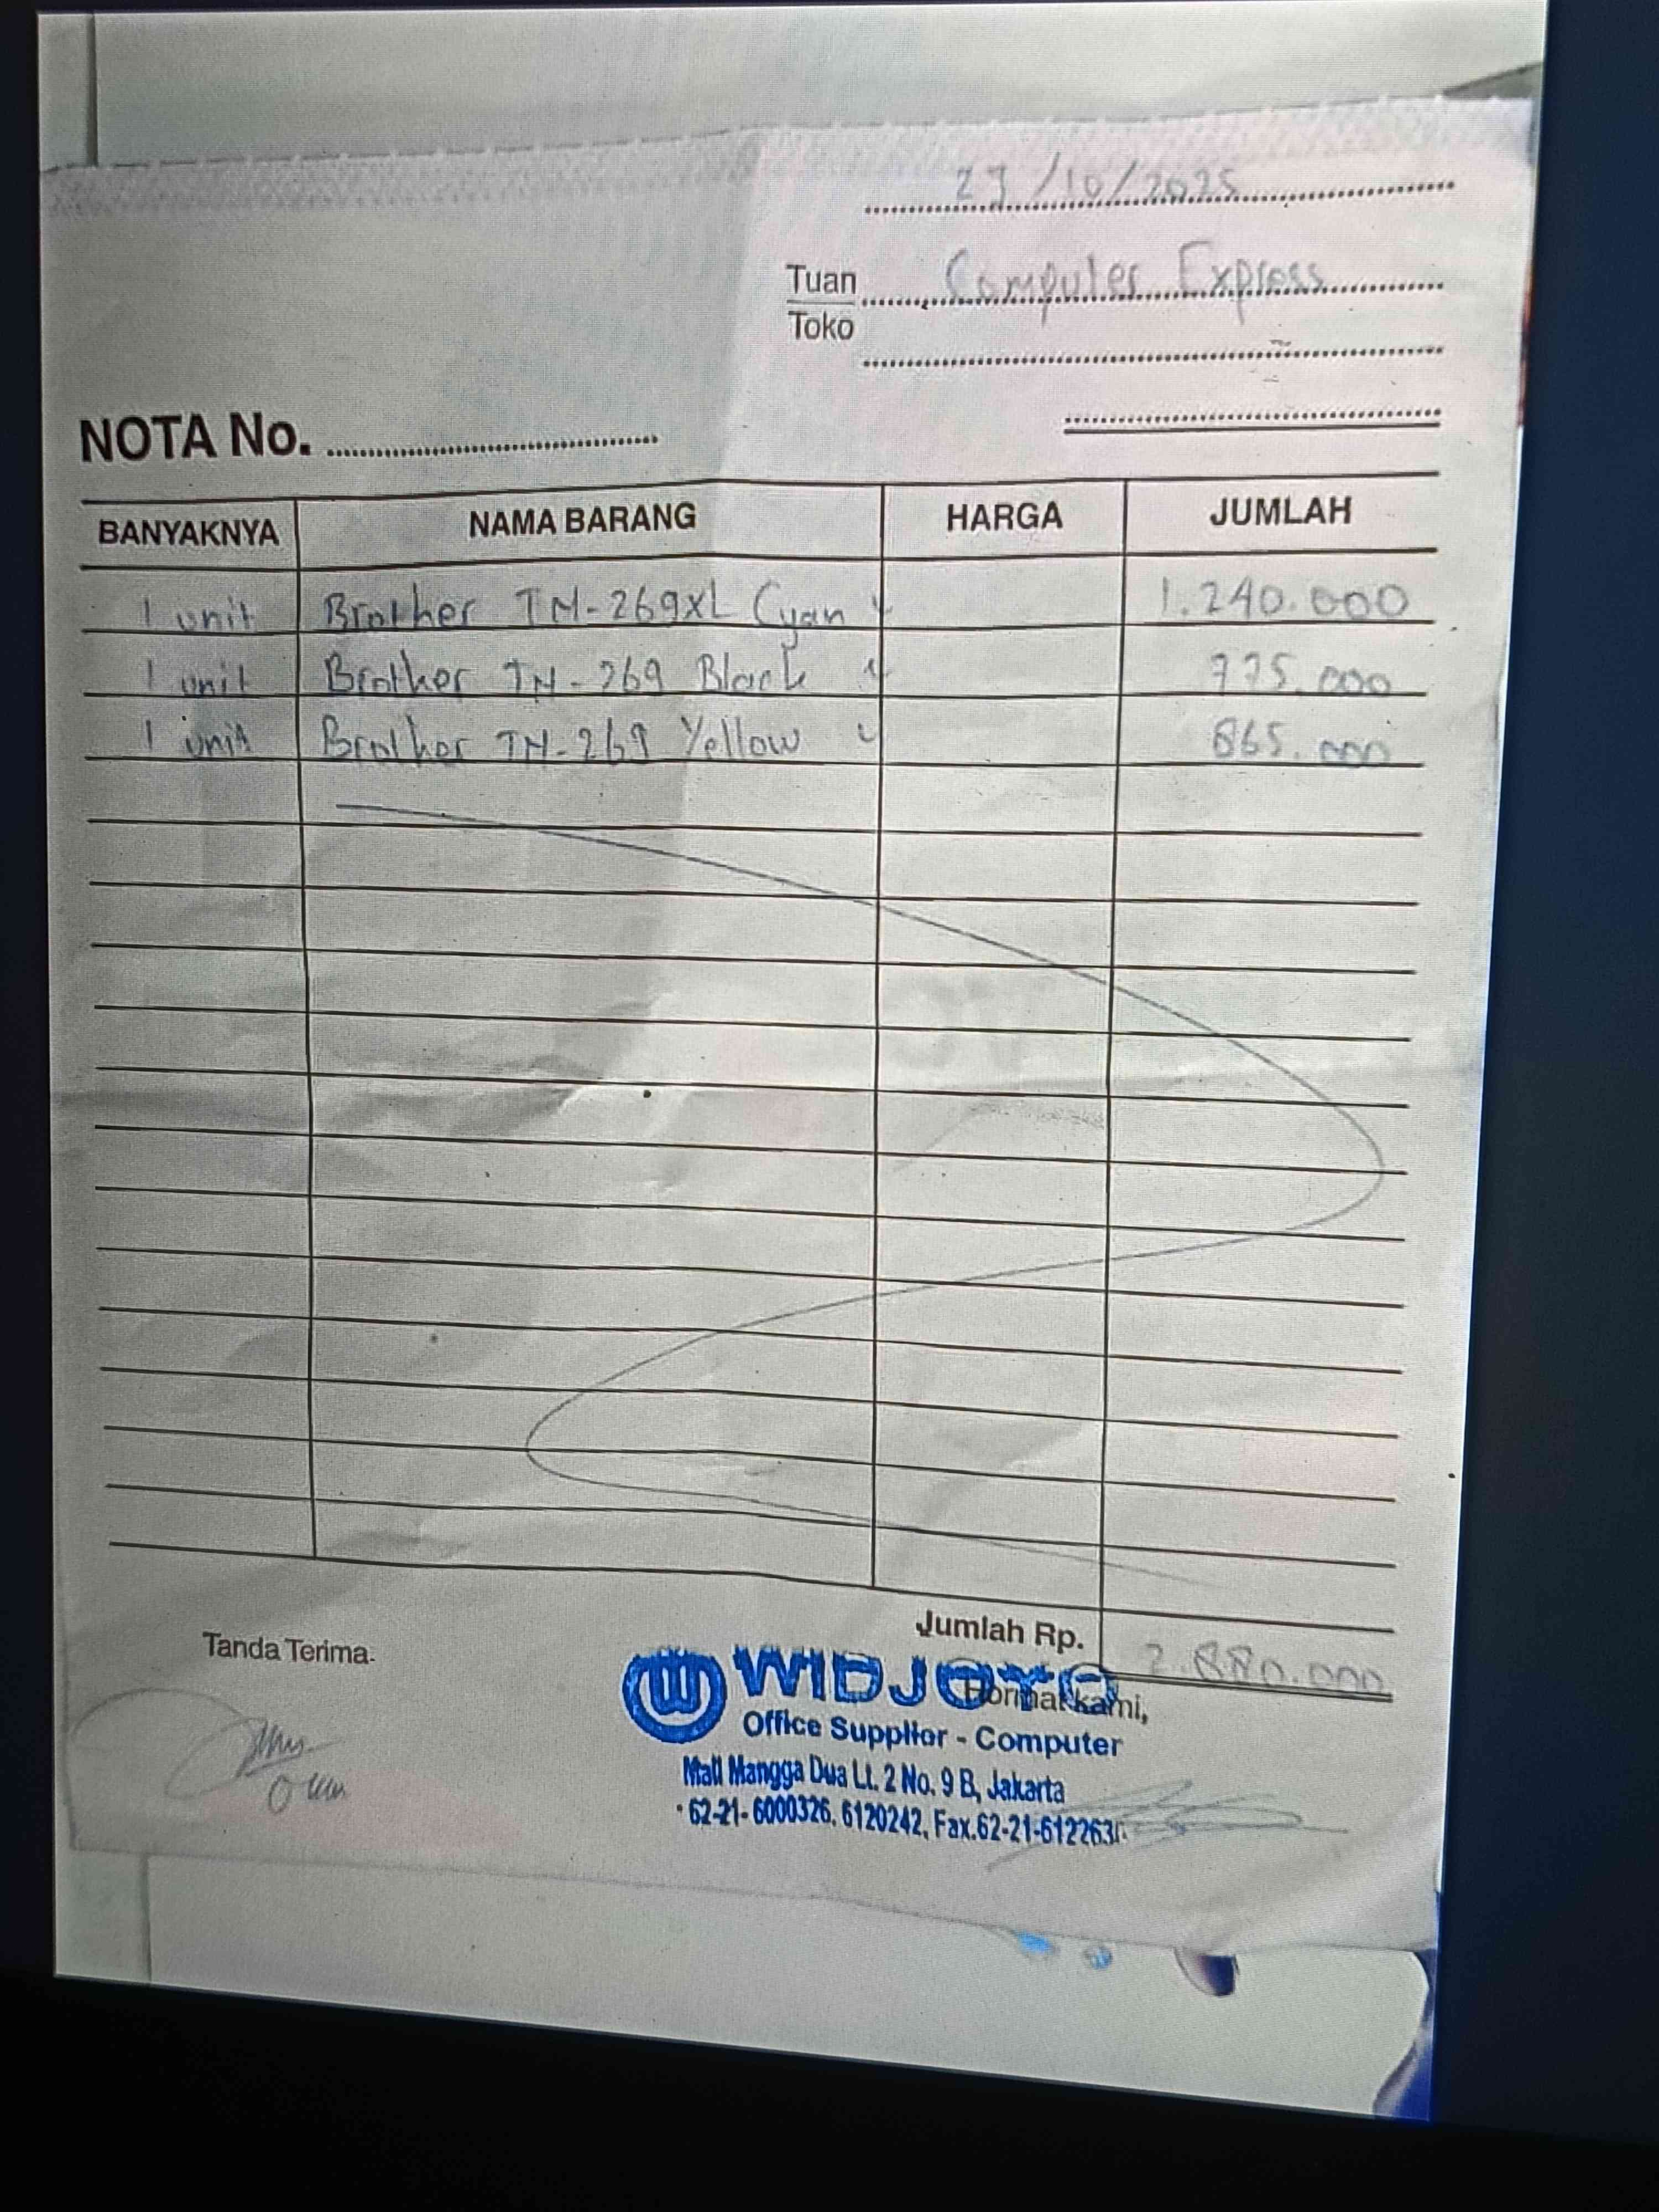 23/10/2025
Tuan Computer Express
Toko
NOTA No.
BANYAKNYA NAMA BARANG HARGA JUMLAH
1 unit Brother TN-269XL Cyan 1.240.000
1 unit Brother TN-269 Black 775.000
1 unit Brother TN-269 Yellow 865.000
Jumlah Rp. 2.880.000
Tanda Terima
Hormat kami,
WIDJOYO
Office Supplier - Computer
Mall Mangga Dua Lt. 2 No. 9 B, Jakarta
62-21-6000326, 6120242, Fax.62-21-612263